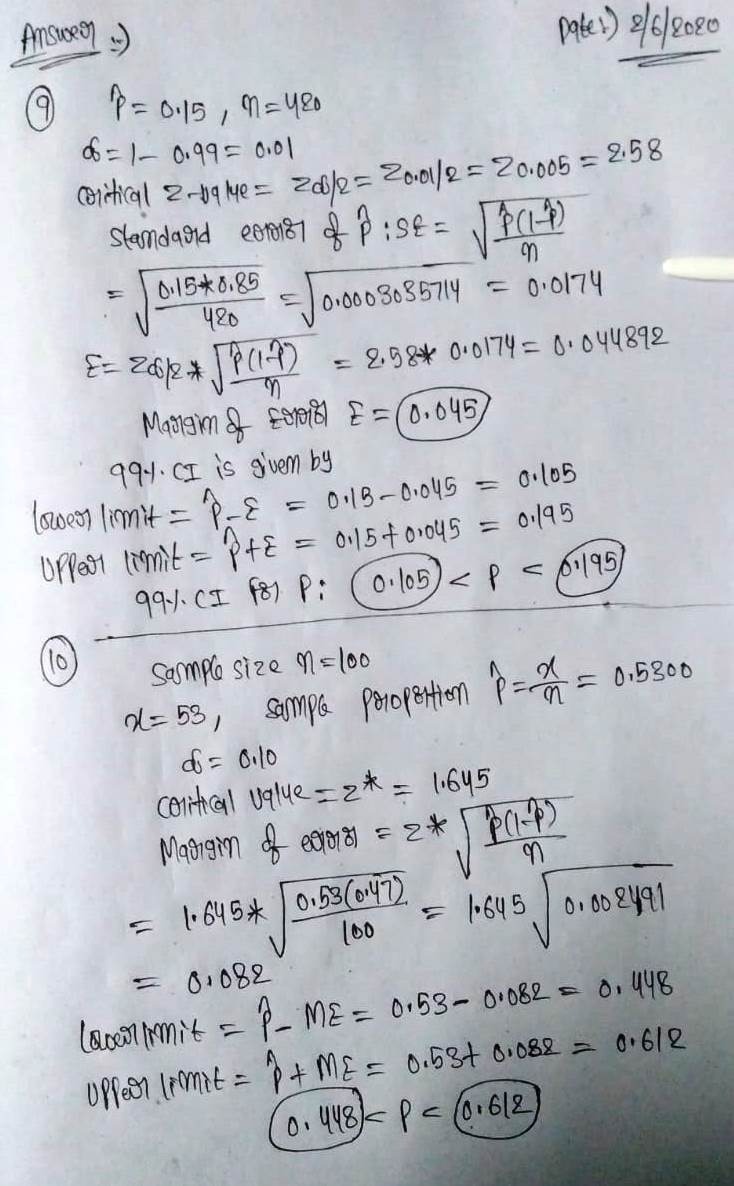 Answer :-) Date:) 2/6/2020
9 p̂ = 0.15, n = 420
α = 1 - 0.99 = 0.01
critical z-value = zα/2 = z0.01/2 = z0.005 = 2.58
Standard error of p̂ : SE = √(p̂(1-p̂)/n)
= √(0.15*0.85/420) = √0.0003035714 = 0.0174
E = zα/2 * √(p̂(1-p̂)/n) = 2.58* 0.0174 = 0.044892
Margin of Error E = 0.045
99% CI is given by
lower limit = p̂ - E = 0.15 - 0.045 = 0.105
upper limit = p̂ + E = 0.15 + 0.045 = 0.195
99% CI for P: 0.105 < P < 0.195
10 Sample size n = 100
x = 53, sample proportion p̂ = x/n = 0.5300
α = 0.10
critical value = z* = 1.645
Margin of error = z* √(p̂(1-p̂)/n)
= 1.645* √(0.53(0.47)/100) = 1.645 √0.002491
= 0.082
lower limit = p̂ - ME = 0.53 - 0.082 = 0.448
upper limit = p̂ + ME = 0.53 + 0.082 = 0.612
0.448 < P < 0.612